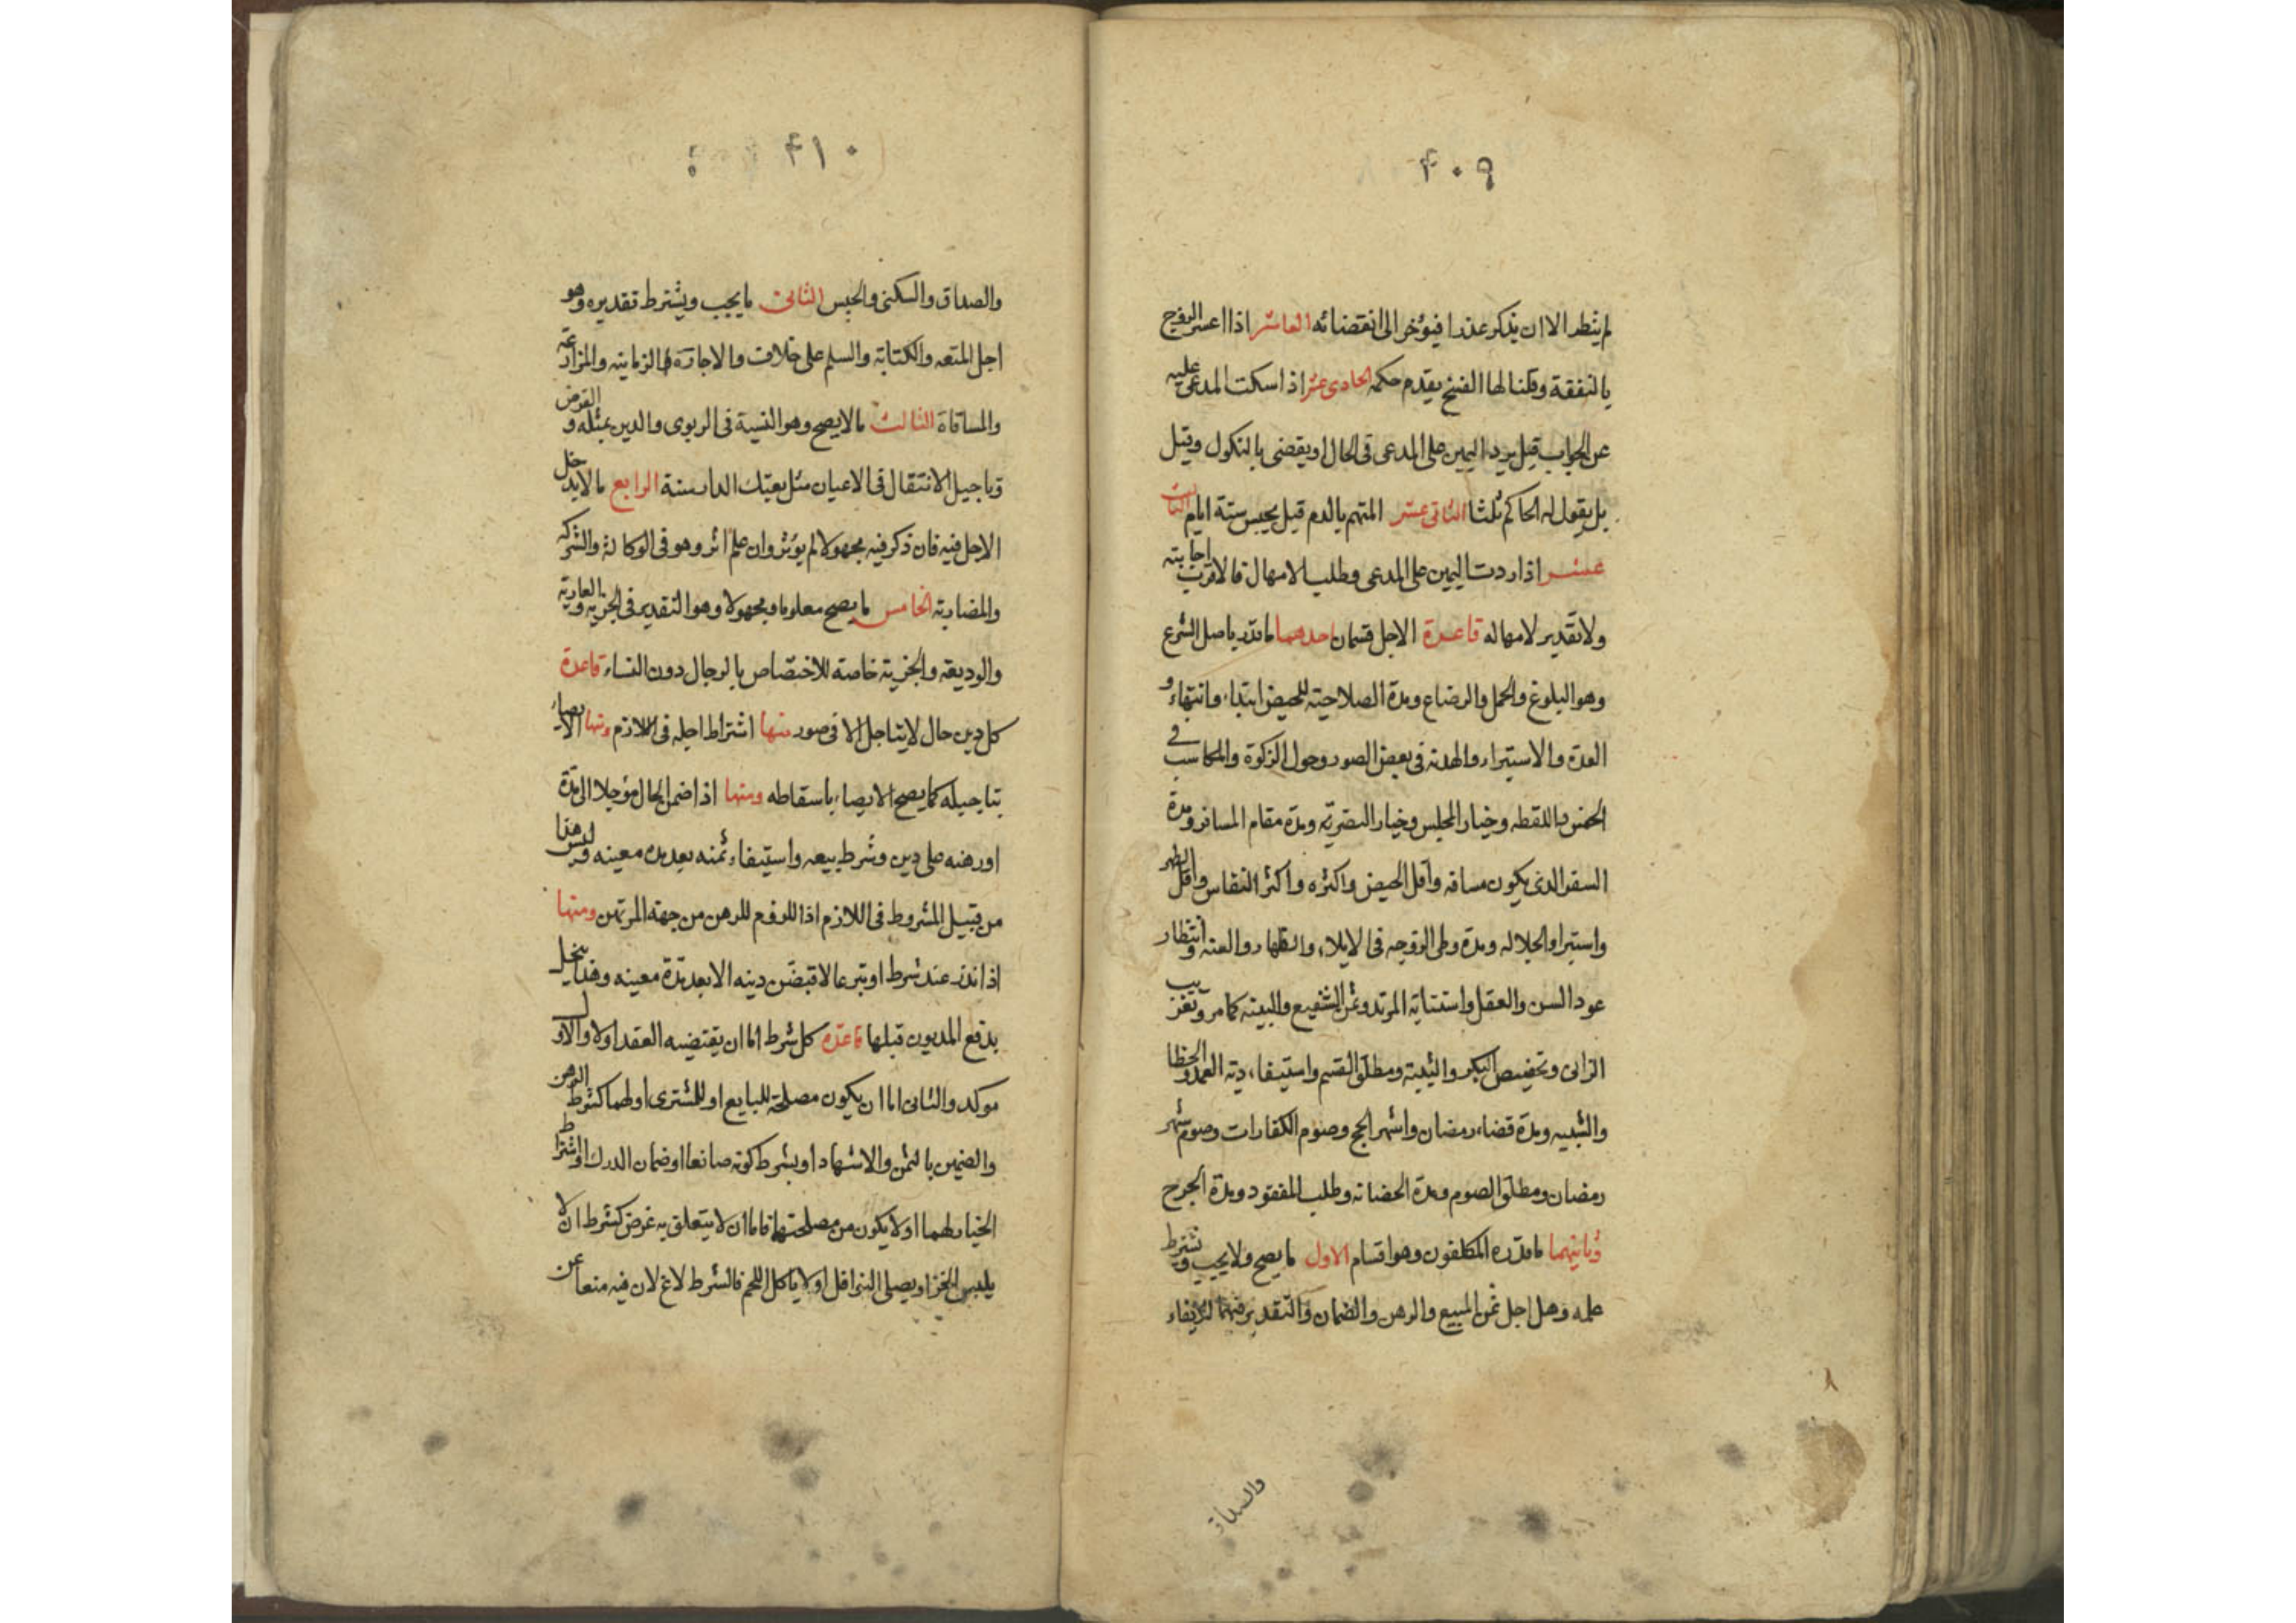 ۴۰۹
لم ينظر الا ان يذكر عذرا فيؤخر الى انقضائه العاشر اذا اعسر الزوج
بالنفقة وقلنا لها الفسخ يقدم حكمه الحادى عشر اذا سكت المدعى عليه
عن الجواب قيل يرد اليمين على المدعى فى الحال او يقضى بالنكول وقيل
بل يقول له الحاكم ثلثا الثانى عشر المتهم بالدم قيل يحبس ستة ايام الثالث
عشر اذا ردت اليمين على المدعى وطلب الامهال فالاقرب اجابته
ولا تقدير لامهاله قاعدة الاجل قسمان احدهما ما قدر باصل الشرع
وهو البلوغ والحمل والرضاع ومدة الصلاحية للحيض ابتداء وانتهاء و
العدة والاستبراء والهدنه فى بعض الصور وحول الزكوة والمكاسب فى
الخمس واللقطه وخيار المجلس وخيار التصرية ومدة مقام المسافر ومدة
السفر الذى يكون مسافه واقل الحيض واكثره واكثر النفاس واقل الطهر
واستبراء الجلاله ومدة وطى الزوجه فى الايلاء والظهار والعنه وانتظار
عود السن والعقل واستتابة المرتد وثمن الشفيع والبينه كما مر وتغريب
الزانى وتخصيص البكر والثيبة ومطلق القسم واستيفاء دية العمد والخطا
والشبيه ومدة قضاء رمضان واشهر الحج وصوم الكفارات وصوم شهر
رمضان ومطلق الصوم ومدة الحضانه وطلب المفقود ومدة الجرح
وثانيهما ما قدره المكلفون وهو اقسام الاول ما يصح ولا يجب ويشترط
علمه وهل اجل ثمن المبيع والرهن والضمان والتقدير فيهما
والصداق
۴۱۰
والصداق والسكنى والحبس الثانى ما يجب ويشترط تقديره وهو
اجل المتعه والكتابة والسلم على خلاف والاجارة الزمانيه والمزارعة
والمساقاة الثالث ما لا يصح وهو النسية فى الربوى والدين بمثله والقرض
وتاجيل الانتقال فى الاعيان مثل بعتك الدار سنة الرابع ما لا يدخل
الاجل فيه فان ذكر فيه مجهولا لم يؤثر وان علم اثر وهو فى الوكالة والشركه
والمضاربة الخامس ما يصح معلوما ومجهولا وهو التقدير فى الجزية والعارية
والوديعه والجزية خاصة للاختصاص بالرجال دون النساء قاعدة
كل دين حال لا يتاجل الا فى صور منها اشتراط اجله فى اللازم ومنها الايصاء
بتاجيله كما يصح الايصاء باسقاطه ومنها اذا ضمن الحال مؤجلا الى مدة
او رهنه على دين وشرط بيعه واستيفاء ثمنه بعد مدة معينه وليس هذا
من قبيل المشروط فى اللازم اذ اللزوم للرهن من جهة المرتهن ومنها
اذا نذر عند شرط او تبرعا لا قبضن دينه الا بعد مدة معينه وهذا يخل
بدفع المديون قبلها قاعدة كل شرط اما ان يقتضيه العقد او لا والاول
موكد والثانى اما ان يكون مصلحة للبايع او للمشترى او لهما كشرط الرهن
والضمين بالثمن والاشهاد او بشرط كونه صانعا او ضمان الدرك او اشتراط
الخيار لهما او لا يكون من مصلحتهما فاما ان لا يتعلق به غرض كشرط ان لا
يلبس الخز او يصلى النوافل او لا ياكل اللحم فالشرط لاغ لان فيه منعا عن